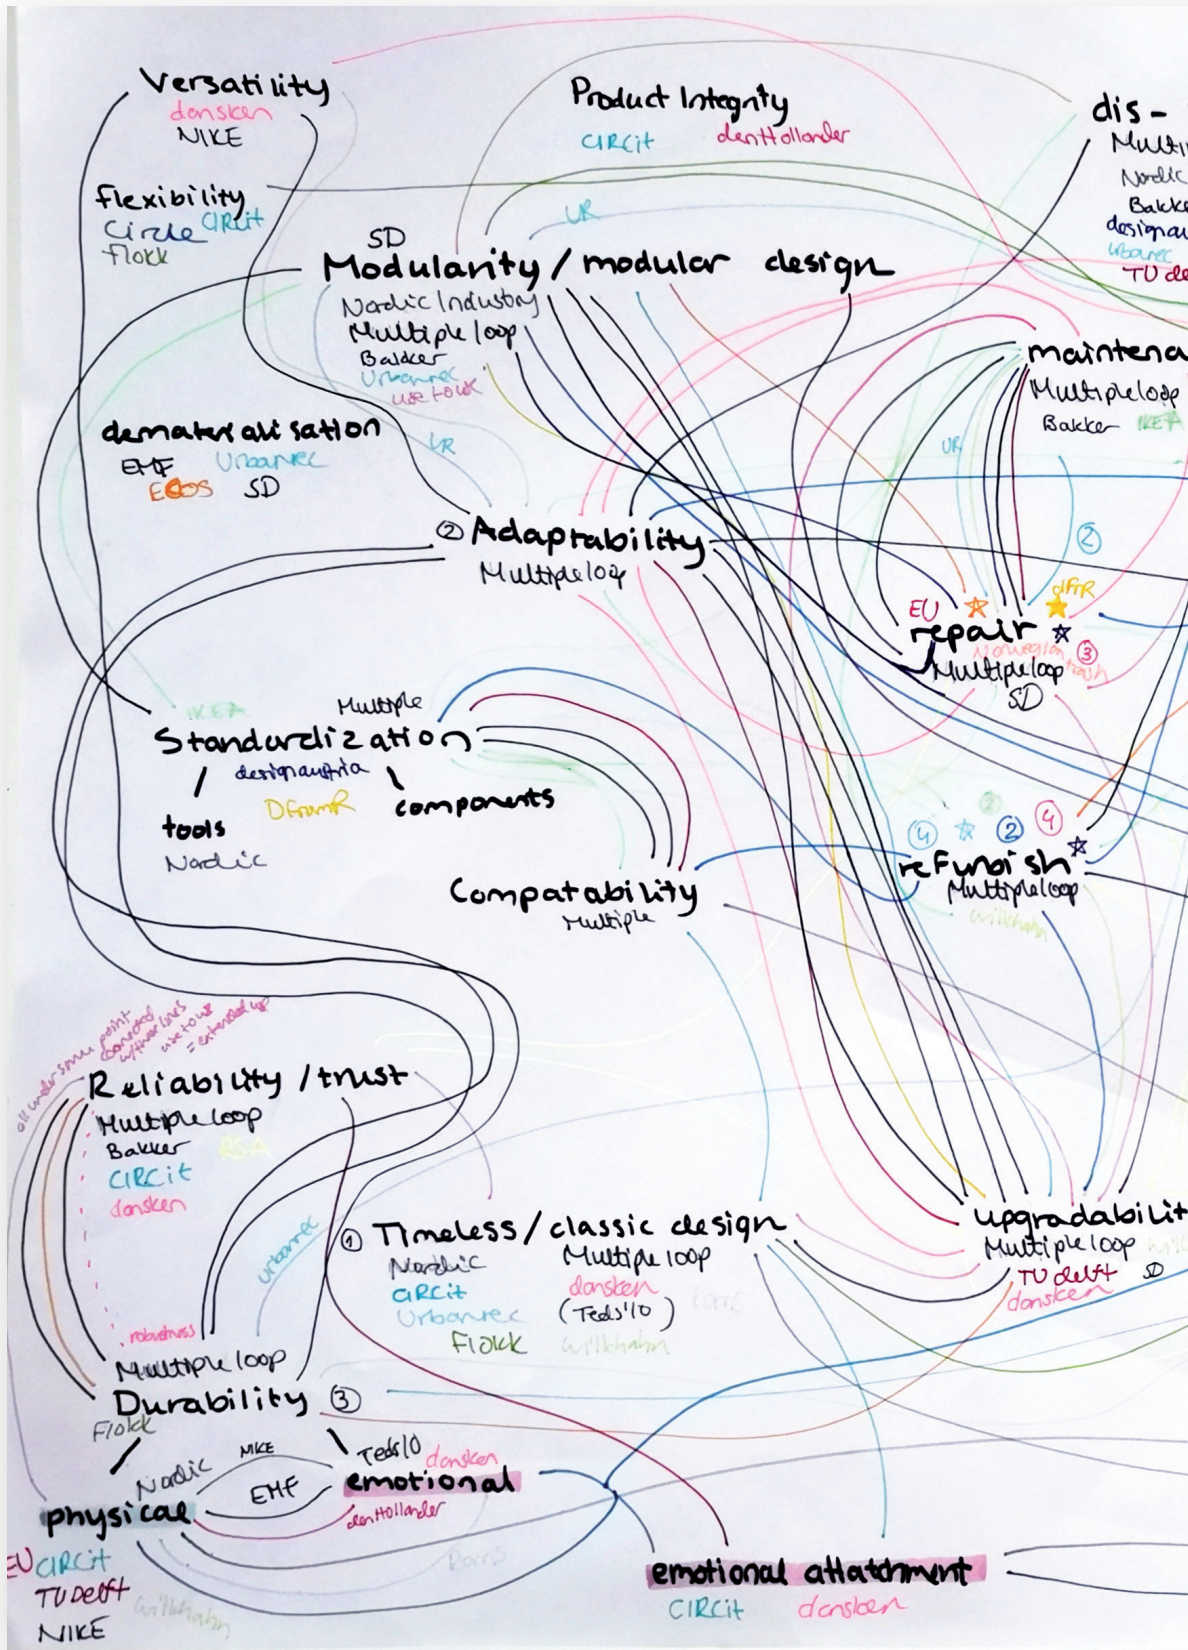 Versatility
dansken
NIKE
Product Integrity
CIRCit denHollander
dis-
Nordic
TU de
flexibility
Circle CIRCit
flokk
UR
SD
Modularity / modular design
Nordic Industry
Multiple loop
Bakker
Urbanrec
use to use
maintena
Multiple loop
Bakker IKEA
UR
dematerialisation
EMF Urbanrec
ECOS SD
UR
② Adaptability
Multiple loop
②
EU
repair
Norwegian
trash
③
Multiple loop
SD
IKEA Multiple
Standardization
designaustria
DframR
tools components
Nordic
④ ② ② ④
refurbish
Multiple loop
wilkhahn
Compatability
Multiple
all under some point
connected
use to use
Reliability / trust
Multiple loop
Bakker RSA
CIRCit
dansken
urbanrec
① Timeless / classic design
Nordic Multiple loop
CIRCit dansken
Urbanrec (Teds'10)
Flokk wilkhahn
upgradabilit
Multiple loop
TU delft SD
dansken
robustness
Multiple loop
Durability ③
Flokk
Nordic NIKE Teds10 dansken
EMF emotional
denHollander
physical
EU CIRCit
TU Delft
wilkhahn
NIKE
emotional attatchment
CIRCit dansken